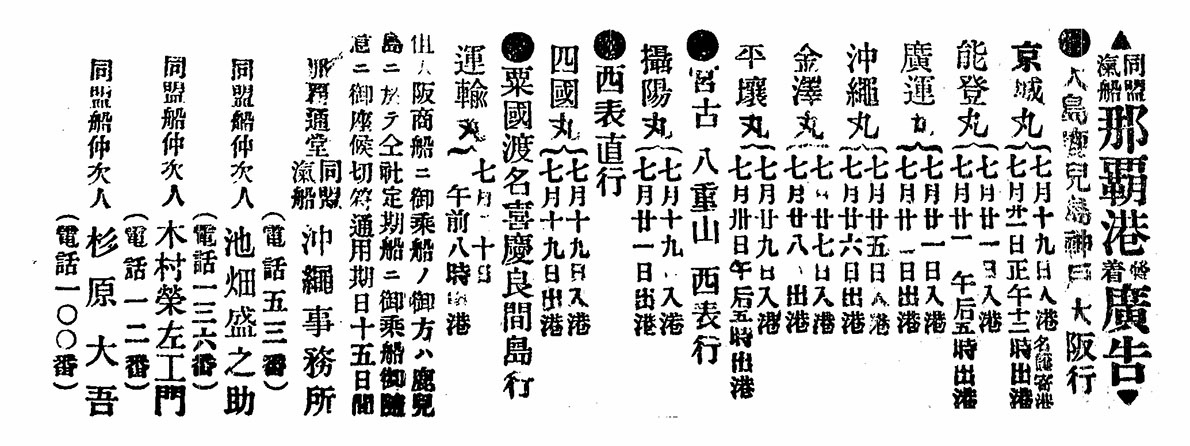 ▲同盟汽船那覇港發着廣告▼
●大島鹿兒島神戸大阪行
京城丸 七月十九日入港名護寄港
七月廿一日正午十二時出港
能登丸 七月廿一日入港
七月廿一 午后五時出港
廣運丸 七月廿一日入港
七月廿一日出港
沖繩丸 七月廿五日入港
七月廿六日出港
金澤丸 七月廿七日入港
七月廿八 出港
平壤丸 七月廿九日入港
七月卅日午后五時出港
●宮古 八重山 西表行
攝陽丸 七月十九 入港
七月廿一日出港
●西表直行
四國丸 七月十九日入港
七月十九日出港
●粟國渡名喜慶良間島行
運輸丸 七月二十日
午前八時出港
但大阪商船ニ御乘船ノ御方ハ鹿兒
島ニ於テ仝社定期船ニ御乘船御隨
意ニ御座候切符通用期日十五日間
那覇通堂 同盟汽船 沖繩事務所
(電話五三番)
同盟船仲次人 池畑盛之助
(電話一三六番)
同盟船仲次人 木村榮左工門
(電話一二番)
同盟船仲次人 杉原大吾
(電話一〇〇番)